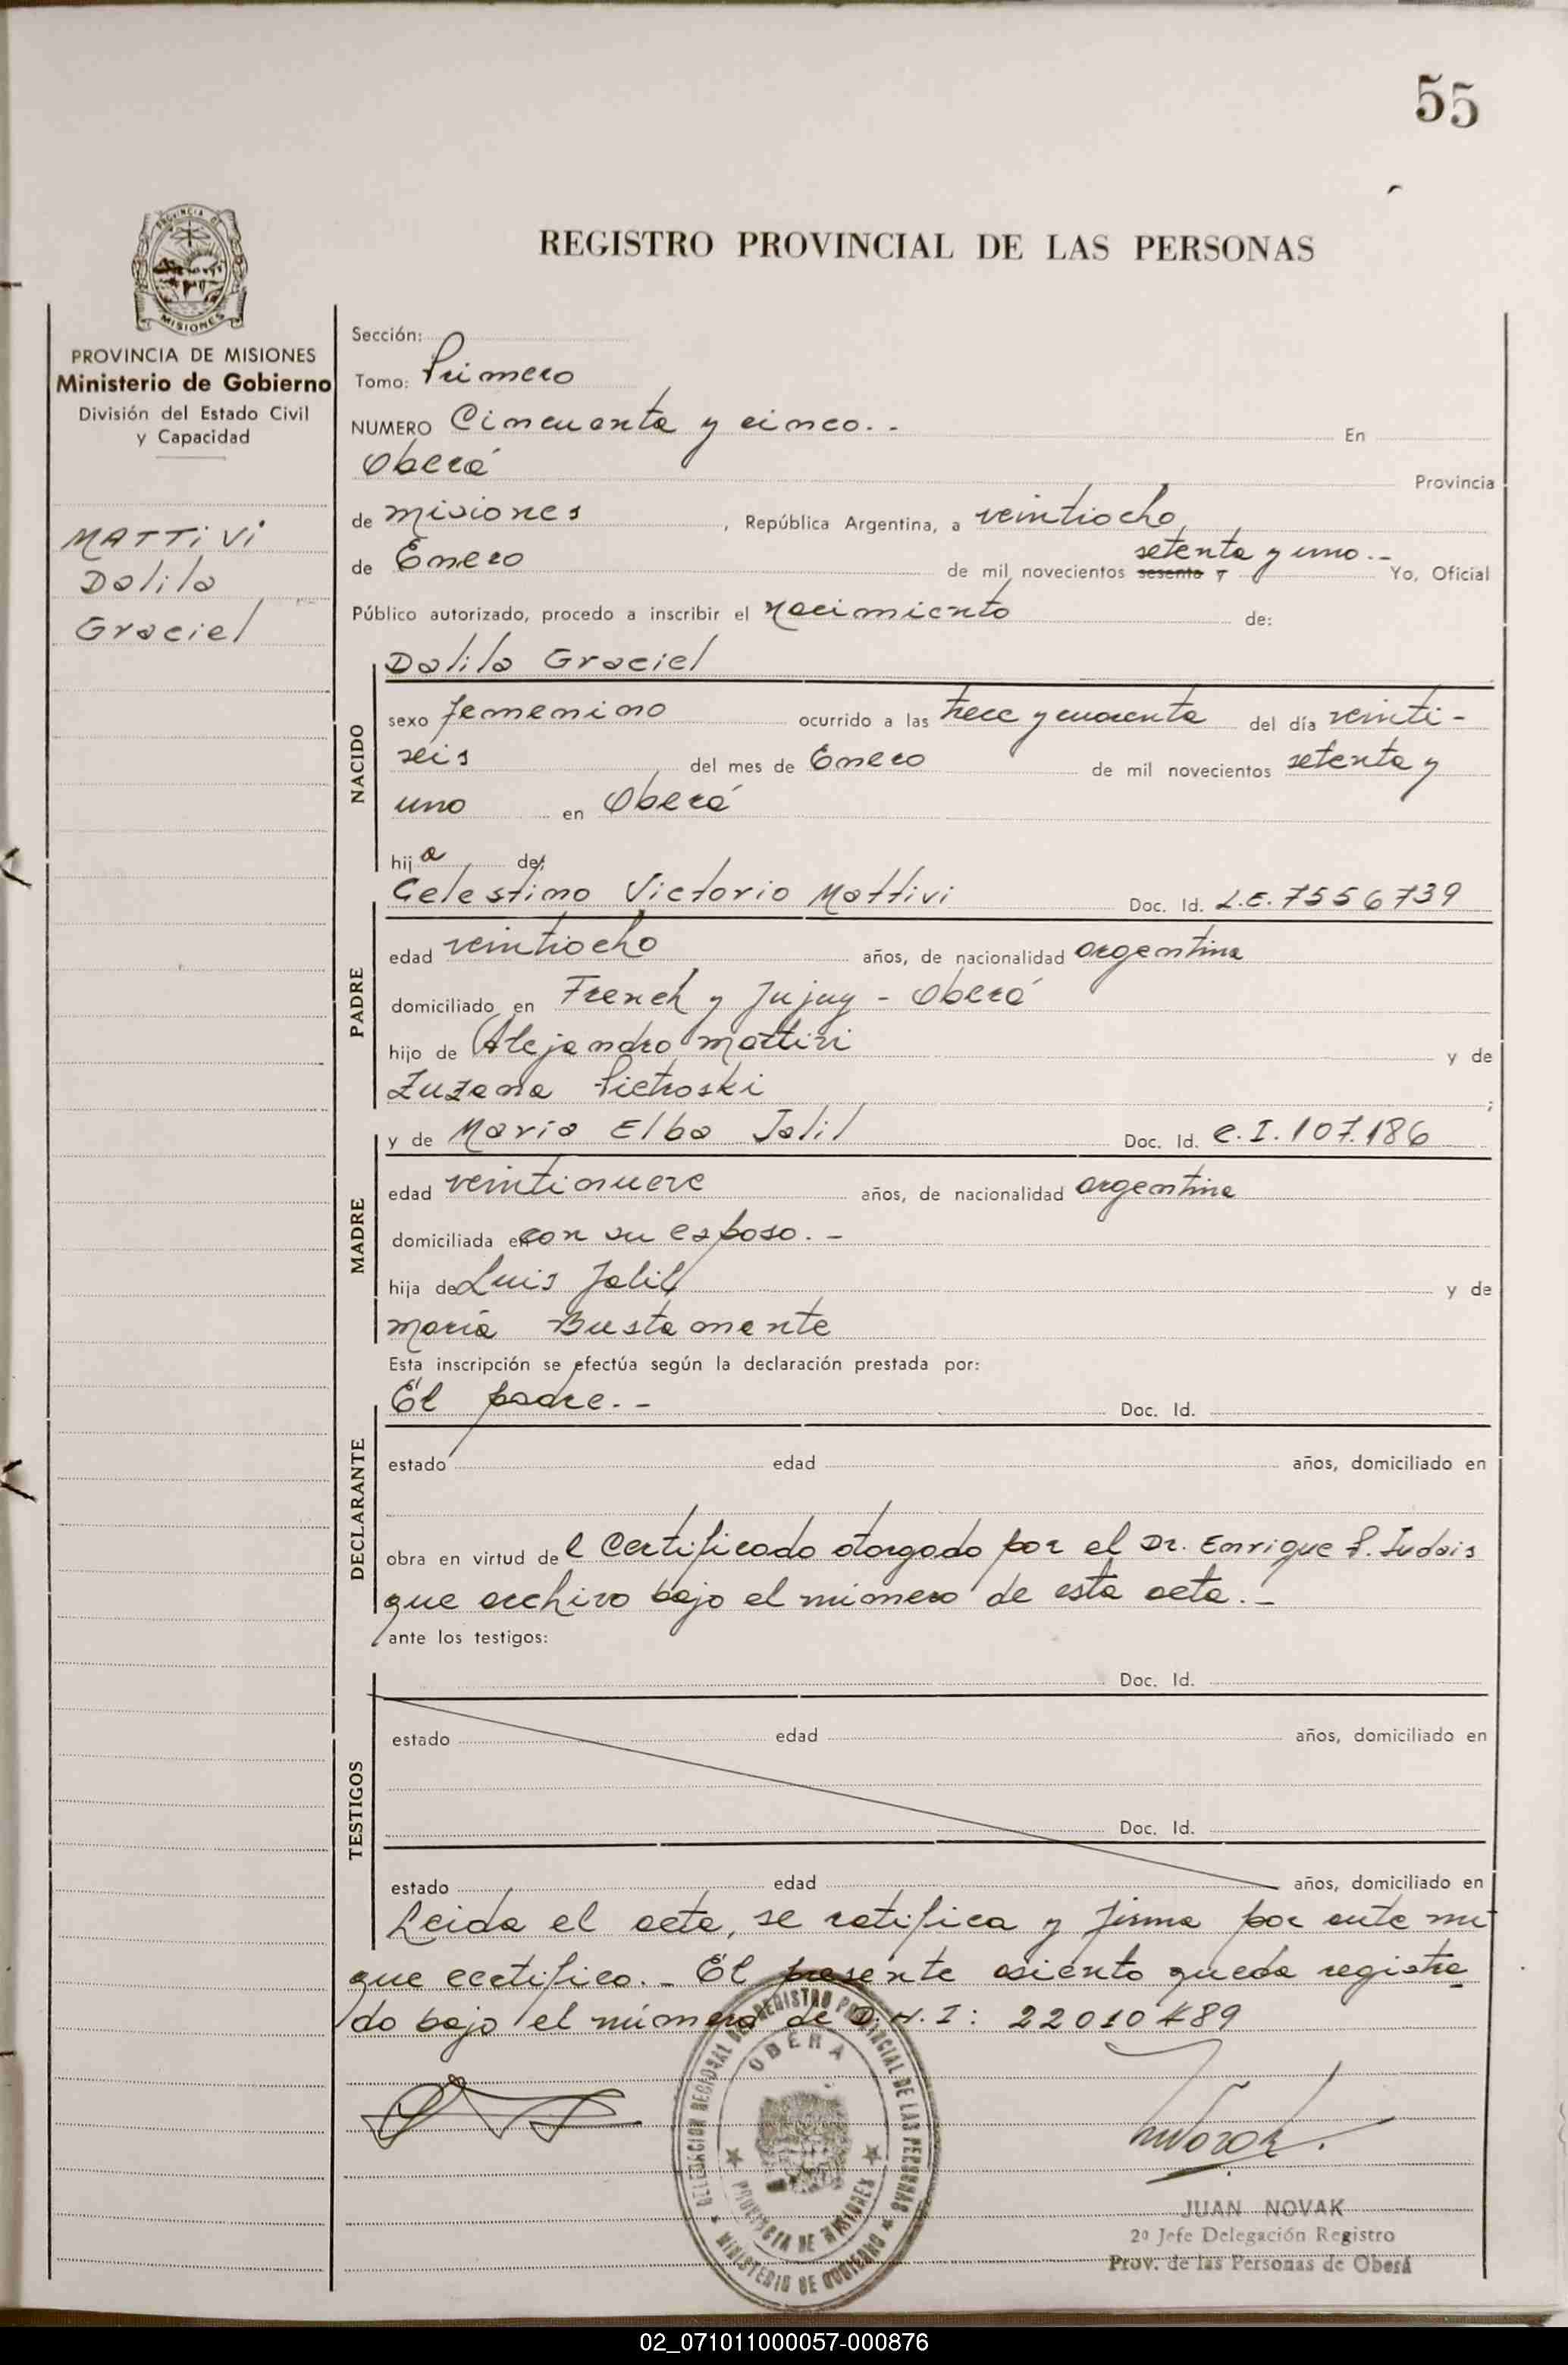 55
REGISTRO PROVINCIAL DE LAS PERSONAS
PROVINCIA DE
MISIONES
PROVINCIA DE MISIONES
Ministerio de Gobierno
División del Estado Civil
y Capacidad
MATTIVI
Dalila
Graciel
Sección:
Tomo: Primero
NUMERO Cincuenta y cinco.- En
Oberá Provincia
de misiones , República Argentina, a veintiocho
de Enero de mil novecientos sesenta y setenta y uno.- Yo, Oficial
Público autorizado, procedo a inscribir el nacimiento de:
Dalila Graciel
NACIDO
sexo femenino ocurrido a las trece y cuarenta del día veinti-
seis del mes de Enero de mil novecientos setenta y
uno en Oberá
hija de
PADRE
Celestino Victorio Mattivi Doc. Id. L.E. 7556739
edad veintiocho años, de nacionalidad argentina
domiciliado en French y Jujuy - Oberá
hijo de Alejandro Mattivi y de
Zuzana Pietroski ;
MADRE
y de Maria Elba Jalil Doc. Id. C.I. 107.186
edad veintinueve años, de nacionalidad argentina
domiciliada en con su esposo.-
hija de Luis Jalil y de
María Bustamante
Esta inscripción se efectúa según la declaración prestada por:
DECLARANTE
El padre.- Doc. Id.
estado edad años, domiciliado en
obra en virtud del Certificado otorgado por el Dr. Enrique P.
que archivo bajo el número de esta acta.-
ante los testigos:
TESTIGOS
Doc. Id.
estado edad años, domiciliado en
Doc. Id.
estado edad años, domiciliado en
Leida el acta, se ratifica y firma por ante mi
que certifico.- El presente asiento queda registra
do bajo el número de D.N.I: 22010489
DELEGACION REGIONAL DEL REGISTRO PROVINCIAL DE LAS PERSONAS
OBERA
PROVINCIA DE MISIONES
MINISTERIO DE GOBIERNO
JUAN NOVAK
2º Jefe Delegación Registro
Prov. de las Personas de Oberá
02_071011000057-000876